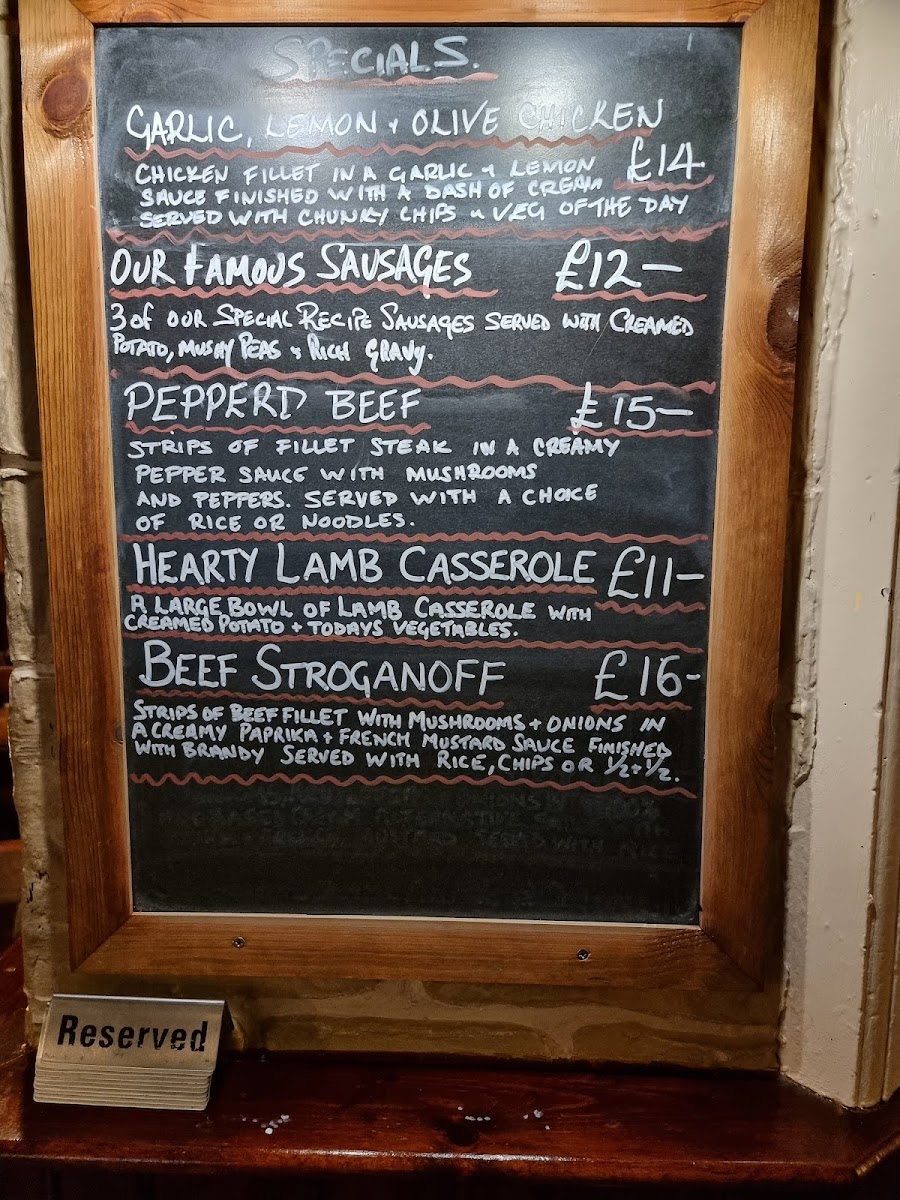 SPECIALS.
GARLIC, LEMON + OLIVE CHICKEN
£14.
CHICKEN FILLET IN A GARLIC + LEMON
SAUCE FINISHED WITH A DASH OF CREAM
SERVED WITH CHUNKY CHIPS + VEG OF THE DAY
OUR FAMOUS SAUSAGES £12—
3 of OUR SPECIAL RECIPE SAUSAGES SERVED WITH CREAMED
POTATO, MUSHY PEAS + RICH GRAVY.
PEPPERD BEEF £15—
STRIPS OF FILLET STEAK IN A CREAMY
PEPPER SAUCE WITH MUSHROOMS
AND PEPPERS. SERVED WITH A CHOICE
OF RICE OR NOODLES.
HEARTY LAMB CASSEROLE £11—
A LARGE BOWL OF LAMB CASSEROLE WITH
CREAMED POTATO + TODAYS VEGETABLES.
BEEF STROGANOFF £16-
STRIPS OF BEEF FILLET WITH MUSHROOMS + ONIONS IN
A CREAMY PAPRIKA + FRENCH MUSTARD SAUCE FINISHED
WITH BRANDY SERVED WITH RICE, CHIPS OR 1/2 + 1/2.
Reserved